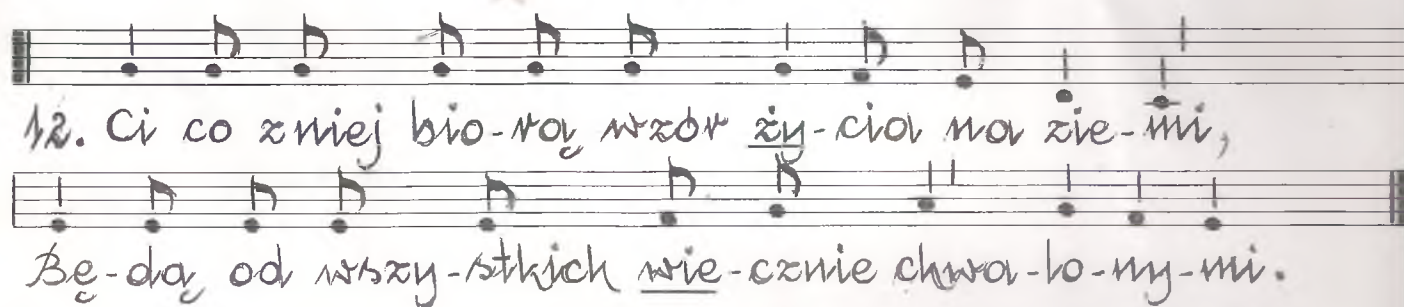 12. Ci co zniej bio-rą wzór ży-cia na zie-mi,
Bę-dą od wszy-stkich wie-cznie chwa-lo-ny-mi.